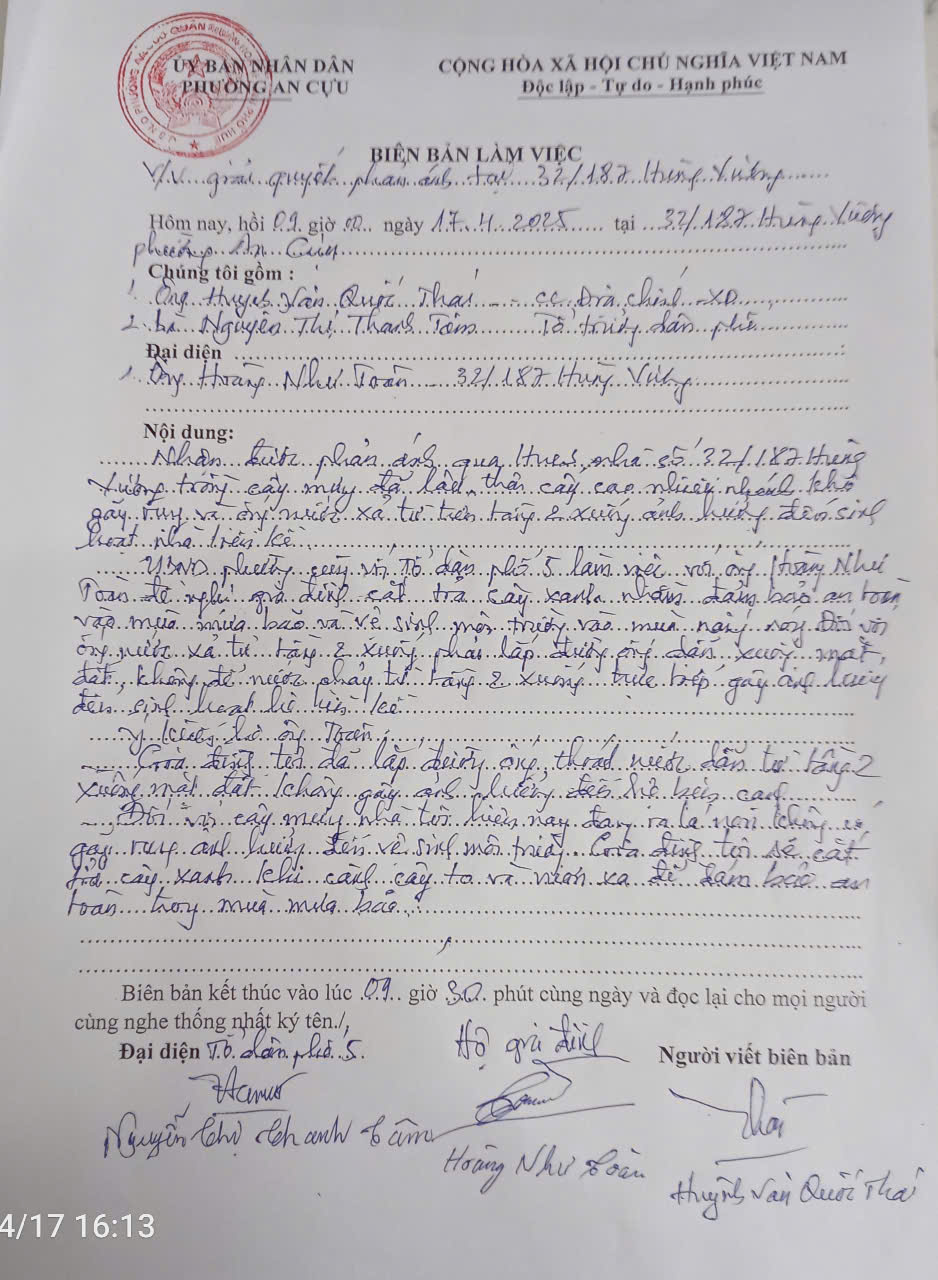 ỦY BAN NHÂN DÂN
PHƯỜNG AN CỰU
CỘNG HÒA XÃ HỘI CHỦ NGHĨA VIỆT NAM
Độc lập - Tự do - Hạnh phúc
BIÊN BẢN LÀM VIỆC
V/v giải quyết phản ánh tại 32/187 Hùng Vương
Hôm nay, hồi 09 giờ 00 ngày 17.4.2025 tại 32/187 Hùng Vương
phường An Cựu
Chúng tôi gồm :
1. Ông Huỳnh Văn Quốc Thái - CC Địa chính - XD
2. bà Nguyễn Thị Thanh Tâm Tổ trưởng dân phố
Đại diện
1. Ông Hoàng Như Toàn 32/187 Hùng Vương
Nội dung:
Nhận được phản ánh qua HueS, nhà số 32/187 Hùng
Vương trồng cây đã lâu, thân cây cao nhiều nhánh khô
và ống nước xả từ trên tầng 2 xuống ảnh hưởng đến sinh
hoạt nhà liền kề
UBND phường cùng với Tổ dân phố 5 làm việc với ông Hoàng Như
Toàn đề nghị gia đình cắt tỉa cây xanh nhằm đảm bảo an toàn
vào mùa mưa bão và vệ sinh môi trường vào mùa nắng này. Đối với
ống nước xả từ tầng 2 xuống phải lắp đường ống dẫn xuống mặt
đất, không để nước chảy từ tầng 2 xuống trực tiếp gây ảnh hưởng
đến sinh hoạt hộ liền kề
Ý kiến hộ ông Toàn:
Gia đình tôi đã lắp đường ống thoát nước dẫn từ tầng 2
xuống mặt đất không gây ảnh hưởng đến hộ bên cạnh
Đối với cây nhà tôi hiện nay đang ra lá non không có
gây ảnh hưởng đến vệ sinh môi trường. Gia đình tôi sẽ cắt
tỉa cây xanh khi cành cây to và vươn xa để đảm bảo an
toàn trong mùa mưa bão.
Biên bản kết thúc vào lúc 09 giờ 30 phút cùng ngày và đọc lại cho mọi người
cùng nghe thống nhất ký tên./,
Đại diện Tổ dân phố 5.
Hộ gia đình
Người viết biên bản
Nguyễn Thị Thanh Tâm
Hoàng Như Toàn
Thái
Huỳnh Văn Quốc Thái
4/17 16:13